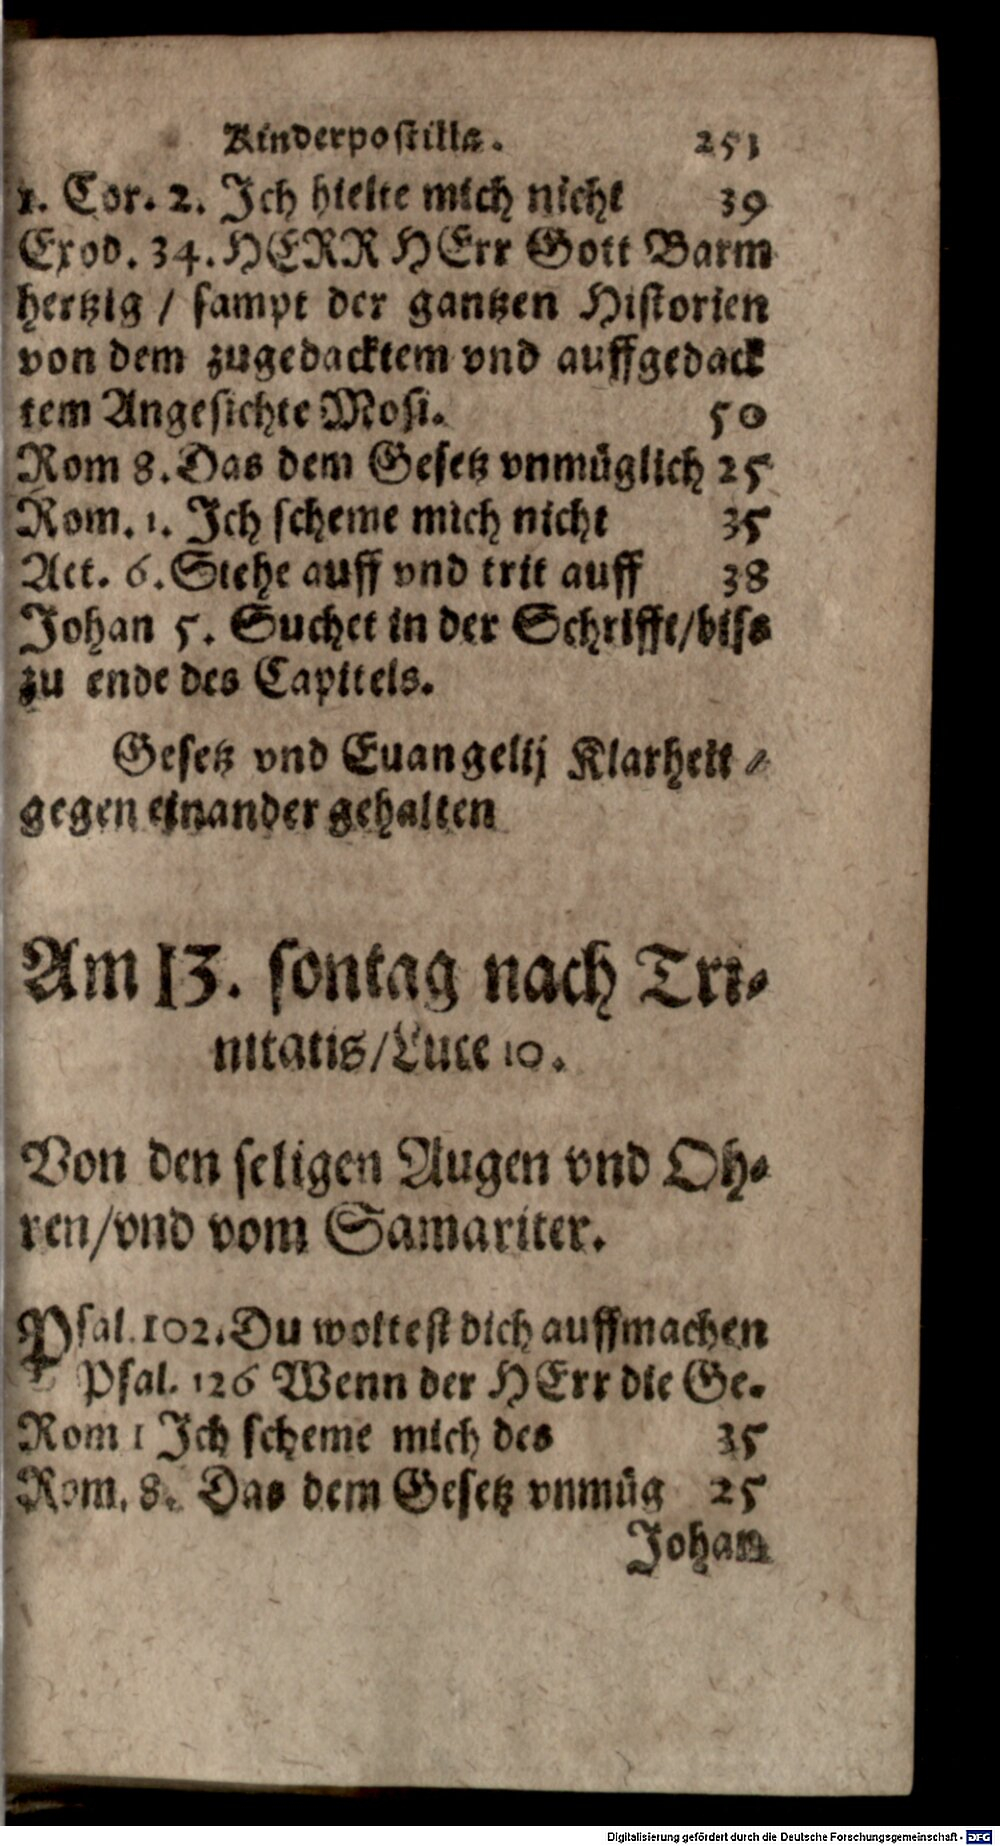 Kinderpostilla. 251
1. Cor. 2. Ich hielte mich nicht 39
Exod. 34. HERR HErr Gott Barm
hertzig / sampt der gantzen Historien
von dem zugedacktem vnd auffgedack
tem Angesichte Mosi. 50
Rom 8. Das dem Gesetz vnmüglich 25
Rom. 1. Ich scheme mich nicht 35
Act. 6. Stehe auff vnd trit auff 38
Johan 5. Suchet in der Schrifft/biss
zu ende des Capitels.
Gesetz vnd Euangelij Klarheit /
gegen einander gehalten
Am 13. sontag nach Tri-
nitatis/Luce 10.
Von den seligen Augen vnd Oh-
ren/vnd vom Samariter.
Psal. 102. Du woltest dich auffmachen
Psal. 126 Wenn der HErr die Ge.
Rom 1 Ich scheme mich des 35
Rom. 8. Das dem Gesetz vnmüg 25
Johan
Digitalisierung gefördert durch die Deutsche Forschungsgemeinschaft - DFG